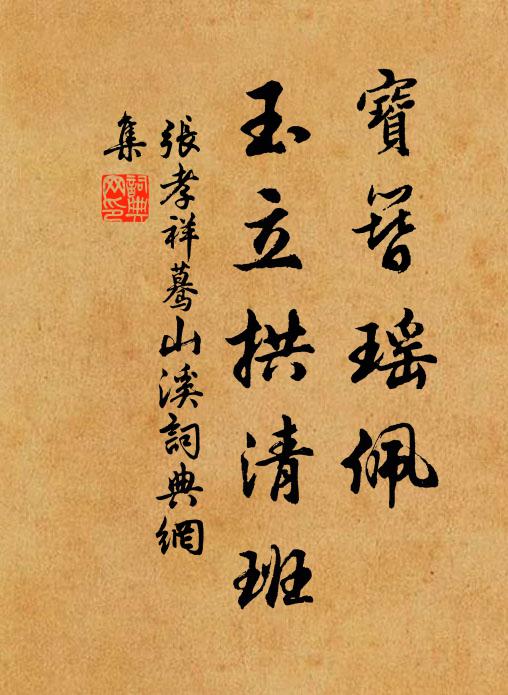 寶簪瑶佩
玉立拱清班
張孝祥驀山溪詞典網
集
詞典網印